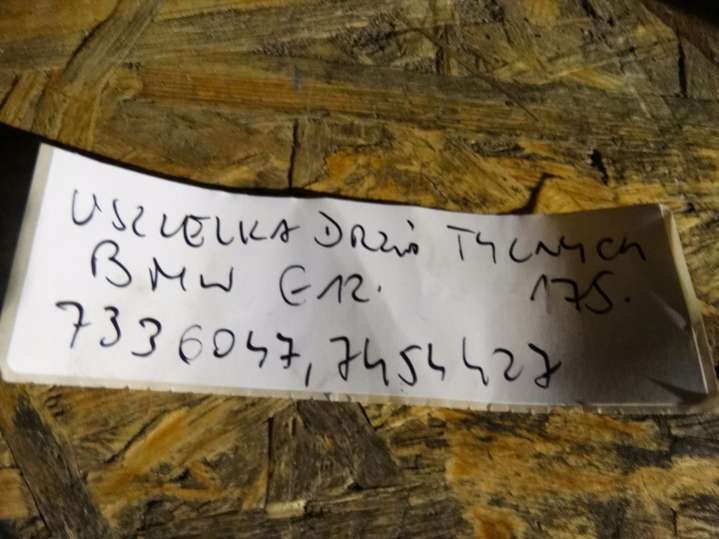 USZCZELKA DRZWI TYLNYCH
BMW G12. 175.
7336047, 7454427